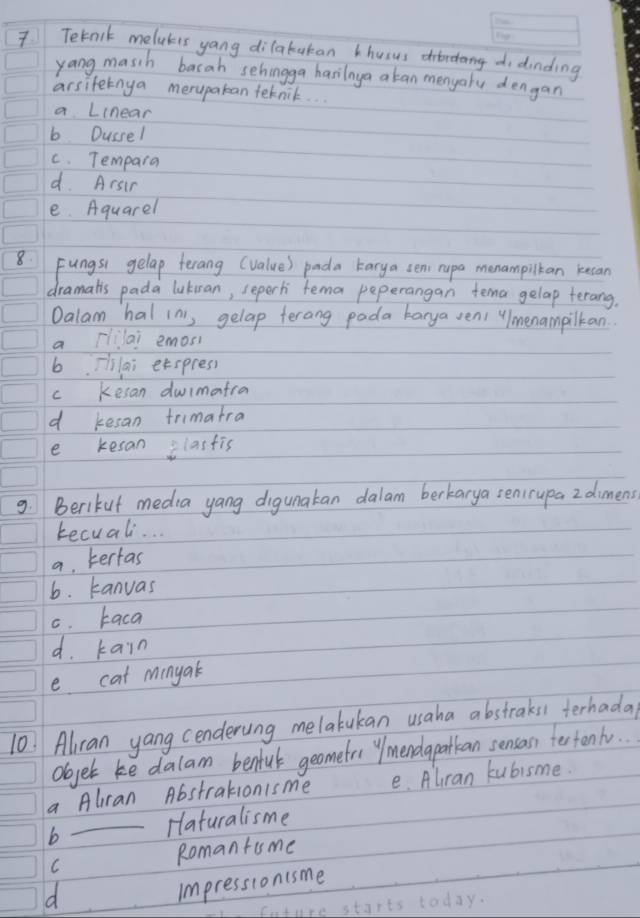 7. Teknik melukis yang dilakukan khusus di dinding
yang masih basah sehingga hasilnya akan menyatu dengan
arsitektnya merupakan teknik...
a. Linear
b. Dussel
c. Tempara
d. Arsir
e. Aquarel
8. Fungsi gelap terang (value) pada karya seni rupa menampilkan kesan
dramatis pada lukisan, seperti tema peperangan tema gelap terang.
Dalam hal ini, gelap terang pada karya seni u/menampilkan..
a Nilai emosi
b. Nilai ekspresi
c kesan dwimatra
d kesan trimatra
e kesan plastis
9. Berikut media yang digunakan dalam berkarya senirupa 2 dimensi
kecuali...
a. kertas
b. kanvas
c. kaca
d. kain
e cat minyak
10. Aliran yang cenderung melakukan usaha abstraksi terhadap
objek ke dalam bentuk geometri u/mendapatkan sensasi tertentu...
a Aliran Abstraksionisme e. Aliran kubisme.
b —— Naturalisme
c Romantisme
d Impressionisme
future starts today.